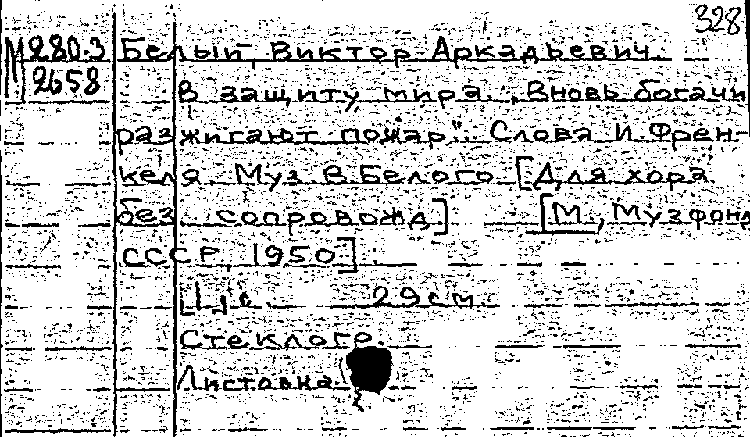 328
М280.3 Белый, Виктор Аркадьевич.
2658 В защиту мира. "Вновь богачи
разжигают пожар". Слова И. Френ-
келя. Муз. В. Белого. [Для хора
без сопровожд.] [М., Музфонд
СССР, 1950].
[1] с. 29 см.
Стеклогр.
Листовка